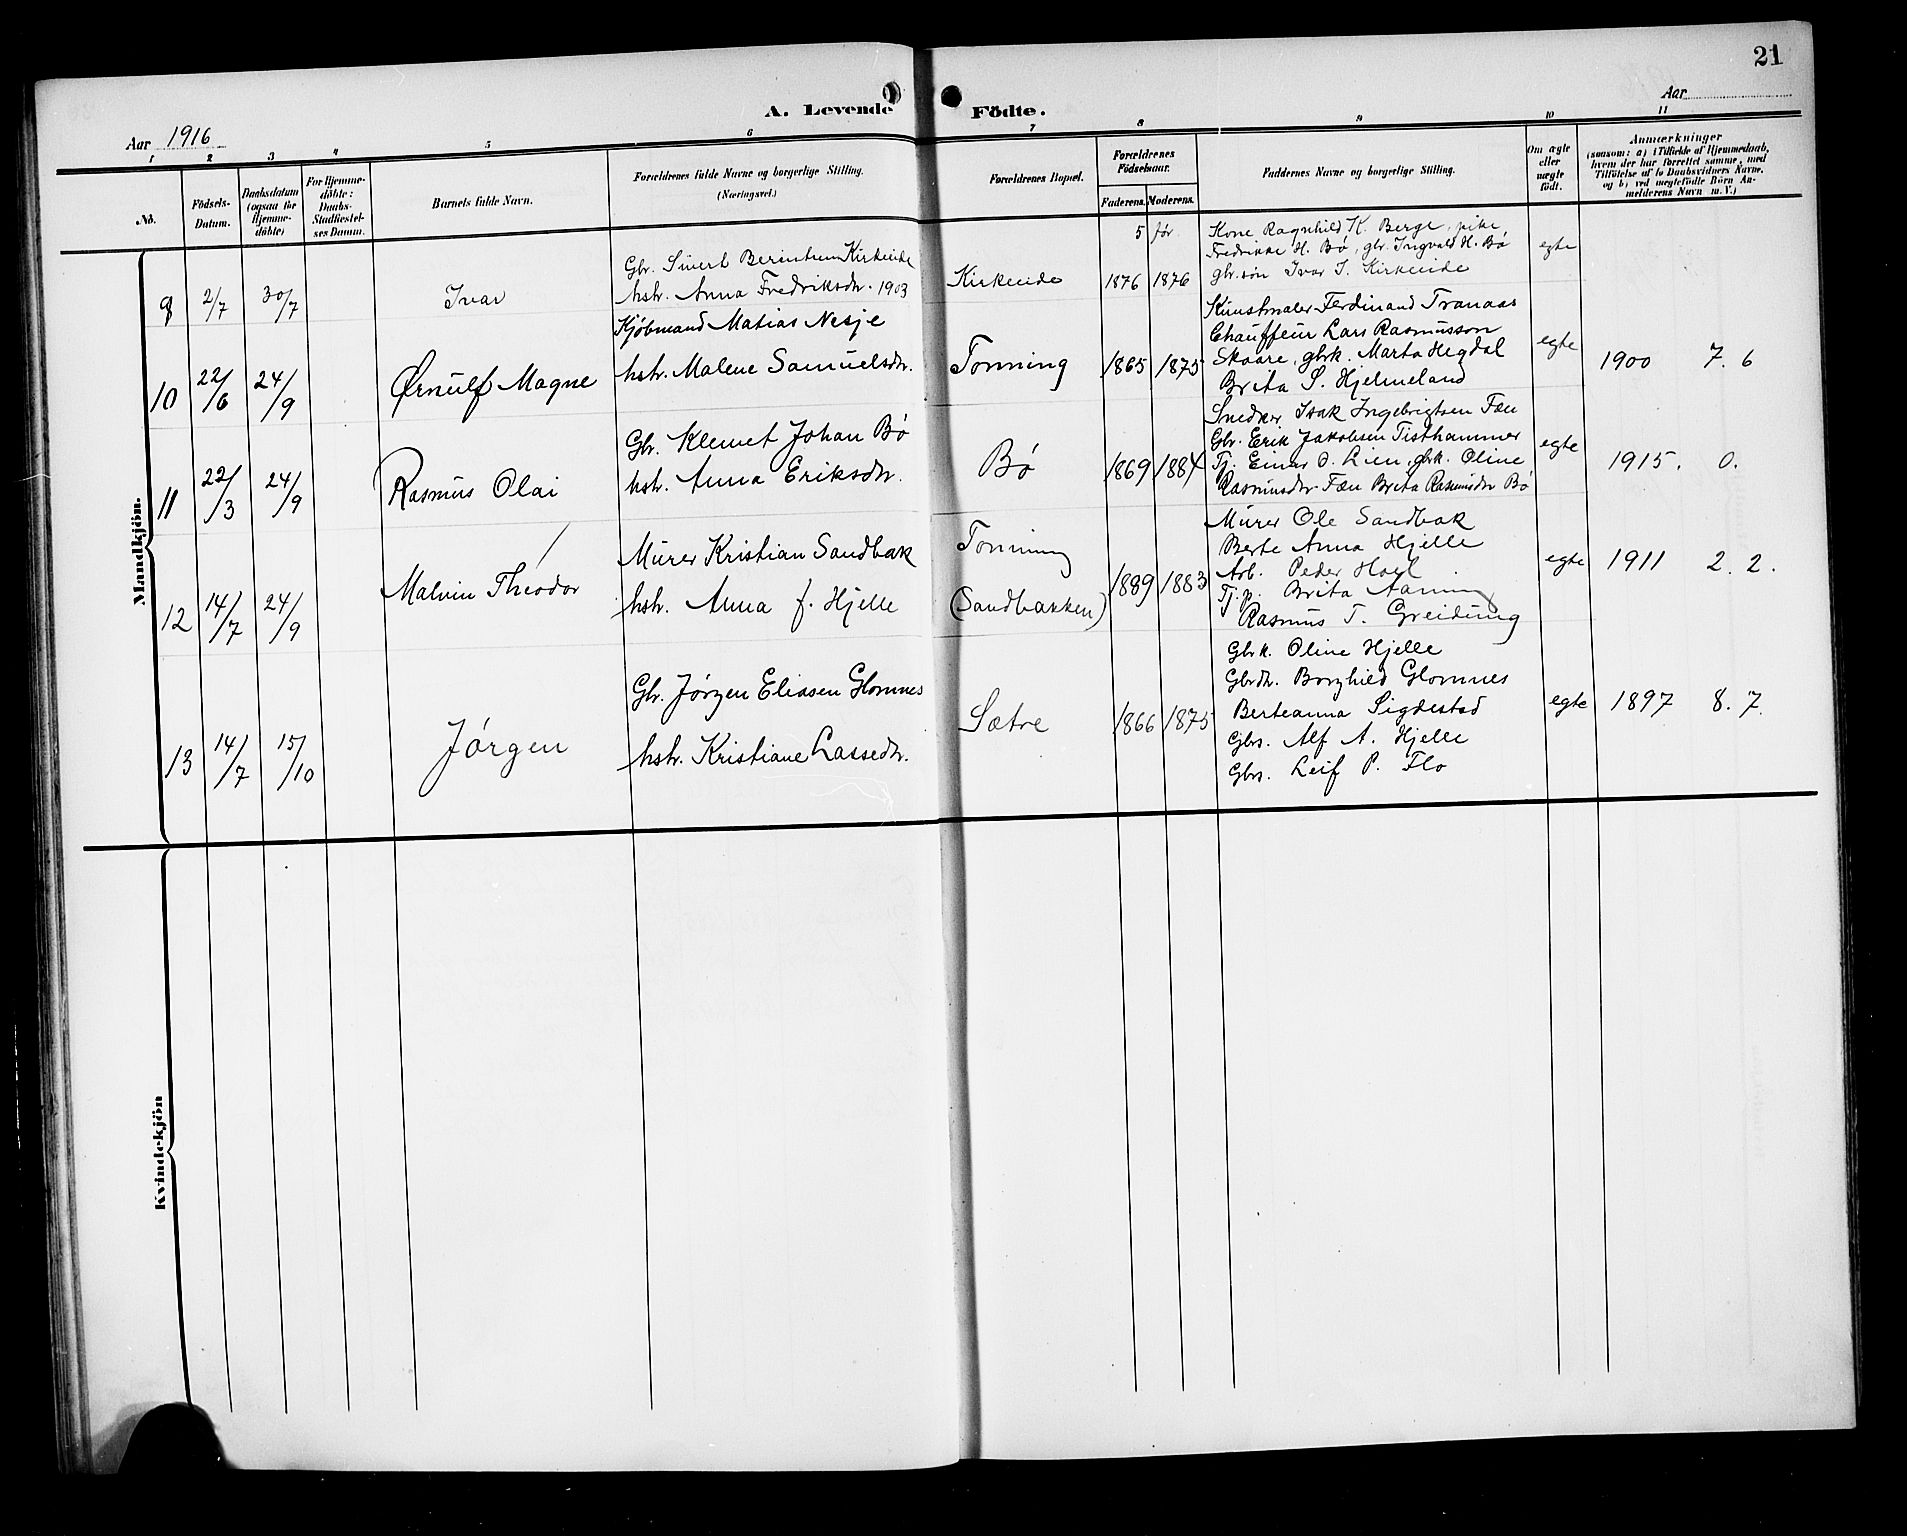 21
A. Levende Födte.
Aar 1916
Aar
1 2 3 4 5 6 7 8 9 10 11
No.
Födsels-Datum.
Daabsdatum (ogsaa for Hjemme-döbte)
For Hjemme-döbte: Daabs-Stadfæstel-ses Datum.
Barnets fulde Navn.
Forældrenes fulde Navne og borgerlige Stilling. (Næringsvei.)
Forældrenes Bopæl.
Forældrenes Födselsaar.
Faderens. Moderens.
Faddernes Navne og borgerlige Stilling.
Om ægte eller uægte födt.
Anmærkninger
(saasom: a) i Tilfælde af Hjemmedaab,
hvem der har forrettet samme, med
Tilföielse af to Daabsvidners Navne.
og b) ved uegtefödte Börn An-
melderens Navn m. V.)
Mandkjön.
9 2/7 30/7
Ivar
Gbr. Sivert Berentsen Kirkeide
hstr. Anna Fredriksdr. 1903
Kirkeide
5 før
1876 1876
Kone Ragnhild K. Berge, pike
Fredrikke H. Bø, gbr. Ingvald H. Bø
gbr.søn Ivar I. Kirkeide
egte
10 22/6 24/9
Ørnulf Magne
Kjøbmand Matias Nesje
hstr. Malene Samuelsdr.
Tonning
1865 1875
Kunstmaler Ferdinand Tranaas
Chauffeur Lars Rasmusson
Skaare, gbrk. Marta Hegdal
Brita S. Hjelmeland
egte
1900 7. 6
11 22/3 24/9
Rasmus Olai
Gbr. Klemet Johan Bø
hstr. Anna Eriksdr.
Bø
1869 1884
Snedker Isak Ingebrigtsen Fæn
Gbr. Erik Jakobsen Tisthammer
Tj. Einar O. Lien, gbrk. Oline
Rasmusdr. Fæn Brita Rasmusdr Bø
egte
1915. 0.
12 14/7 24/9
Malvin Theodor
Murer Kristian Sandbak
hstr. Anna f. Hjelle
Tonning
(Sandbakken)
1889 1883
Murer Ole Sandbak
Berte Anna Hjelle
Arb. Peder Hoel
Tj.p. Brita Aaning
Rasmus T. Greidung
egte
1911 2. 2.
13 14/7 15/10
Jørgen
Gbr. Jørgen Eliasen Glomnes
hstr. Kristiane Lassedr.
Sætre
1866 1875
Gbrk. Oline Hjelle
Gbrdtr. Borghild Glomnes
Berteanna Sigdestad
Gbrs. Alf A. Hjelle
Gbrs. Leif P. Flo
egte
1897 8. 7.
Kvindekjön